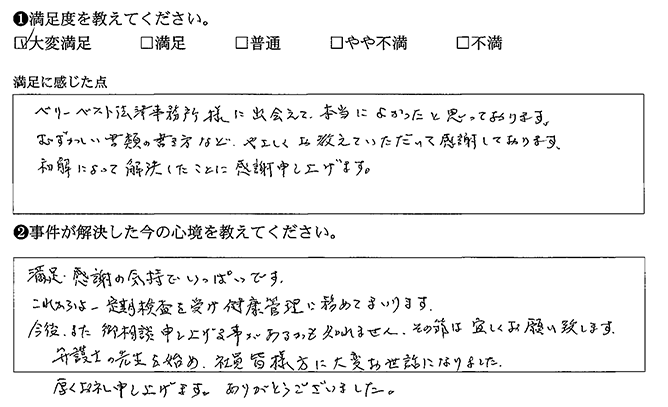 ❶満足度を教えてください。
☑大変満足 □満足 □普通 □やや不満 □不満
満足に感じた点
ベリーベスト法律事務所様に出会えて、本当によかったと思っております。
むずかしい書類の書き方など、やさしくお教えていただいて感謝しております。
和解によって解決したことに感謝申し上げます。
❷事件が解決した今の心境を教えてください。
満足・感謝の気持でいっぱいです。
これからは、定期検査を受け健康管理に務めてまいります。
今後、また御相談申し上げる事があるかも知れません、その節は宜しくお願い致します。
弁護士の先生を始め、社員皆様方に大変お世話になりました。
厚くお礼申し上げます。ありがとうございました。